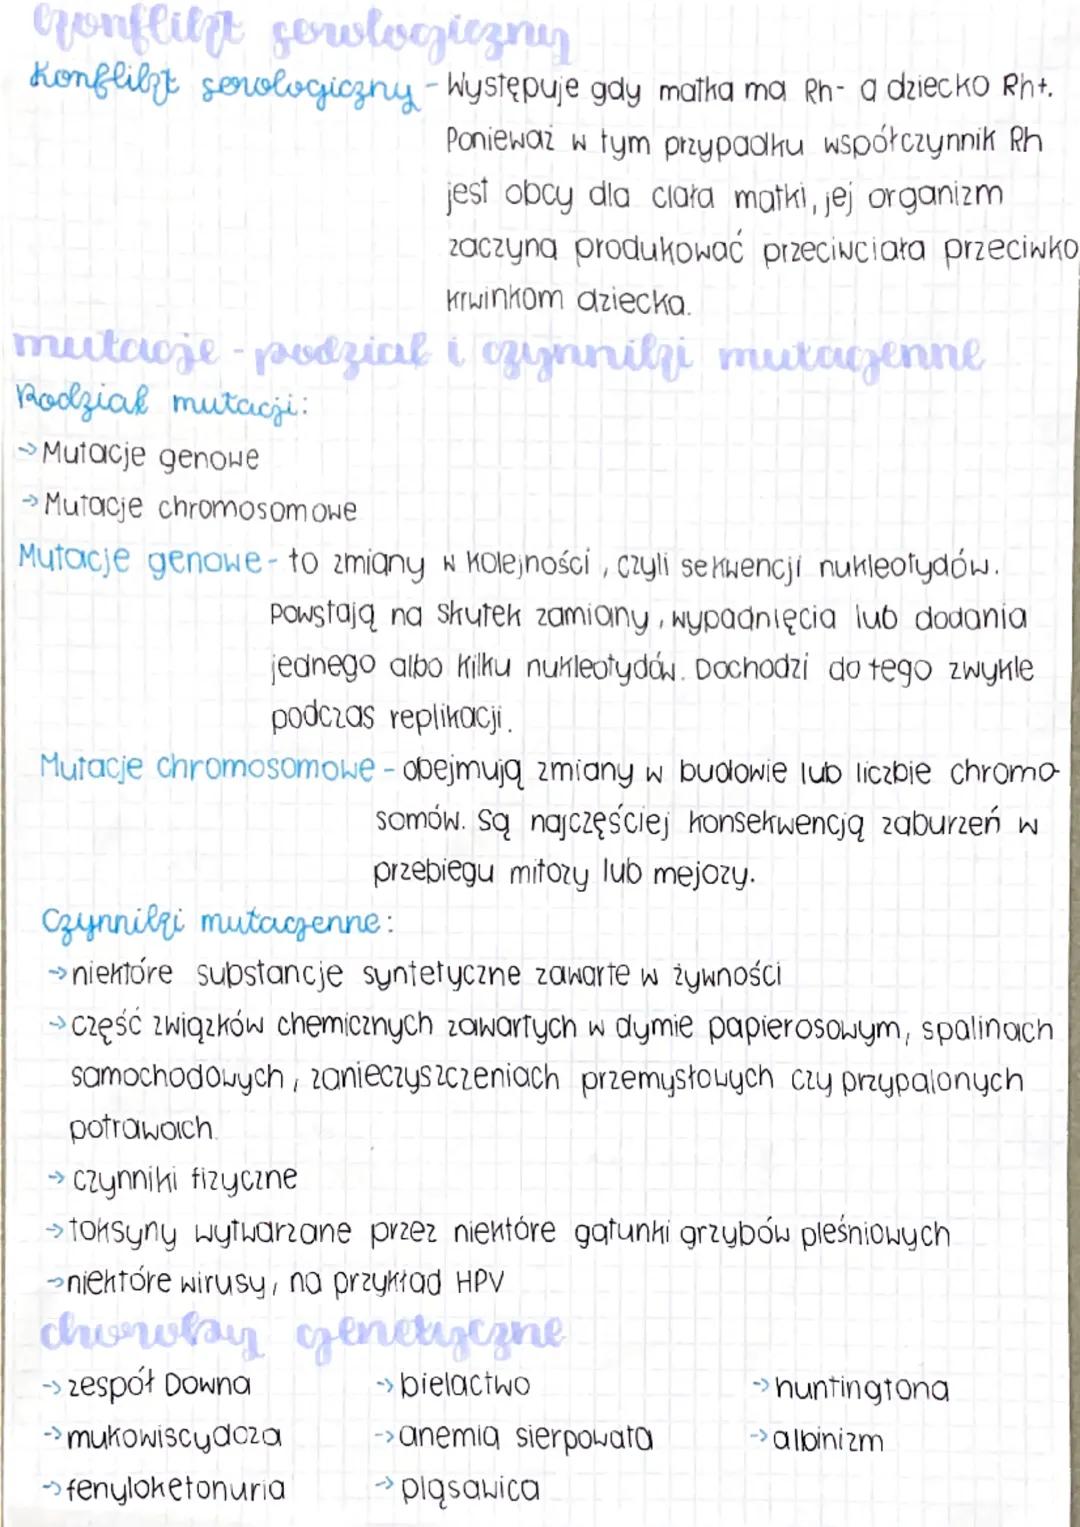 konflikt serologiczny
Konflikt serologiczny - Występuje gdy matka ma Rh- a dziecko Rh+.
Ponieważ w tym przypadku współczynnik Rh
jest obcy dla ciała matki, jej organizm
zaczyna produkować przeciwciała przeciwko
krwinkom dziecka.
mutacje - podział i czynniki mutagenne
Rodział mutacji:
→ Mutacje genowe
→ Mutacje chromosomowe
Mutacje genowe - to zmiany w kolejności, czyli sekwencji nukleotydów.
powstają na skutek zamiany, wypadnięcia lub dodania
jednego albo kilku nukleotydów. Dochodzi do tego zwykle
podczas replikacji.
Mutacje chromosomowe - obejmują zmiany w budowie lub liczbie chromo-
somów. Są najczęściej konsekwencją zaburzeń w
przebiegu mitozy lub mejozy.
Czynniki mutagenne:
→ niektóre substancje syntetyczne zawarte w żywności
→ część związków chemicznych zawartych w dymie papierosowym, spalinach
samochodowych, zanieczyszczeniach przemysłowych czy przypalonych
potrawach.
→ czynniki fizyczne
→ toksyny wytwarzane przez niektóre gatunki grzybów pleśniowych
→ niektóre wirusy, na przykład HPV
choroby genetyczne
→ zespół Downa → bielactwo → huntingtona
→ mukowiscydoza → anemia sierpowata → albinizm
→ fenyloketonuria → pląsawica